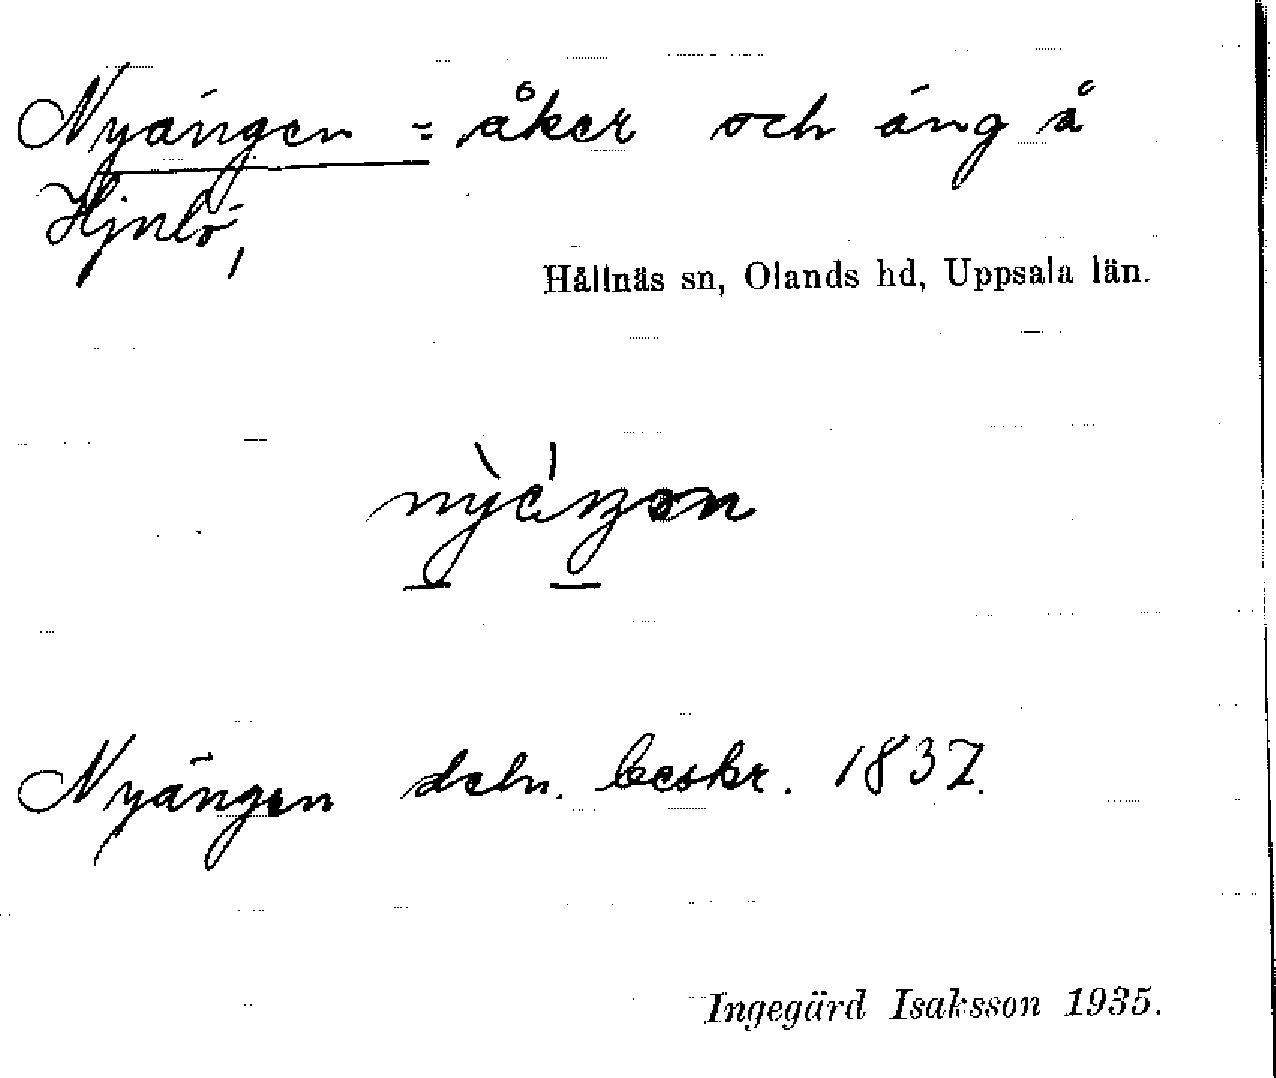 Nyängen = åker och äng å
Hjnbö,
Hållnäs sn, Olands hd, Uppsala län.
Nyängen deln. beskr. 1837.
Ingegärd Isaksson 1935.